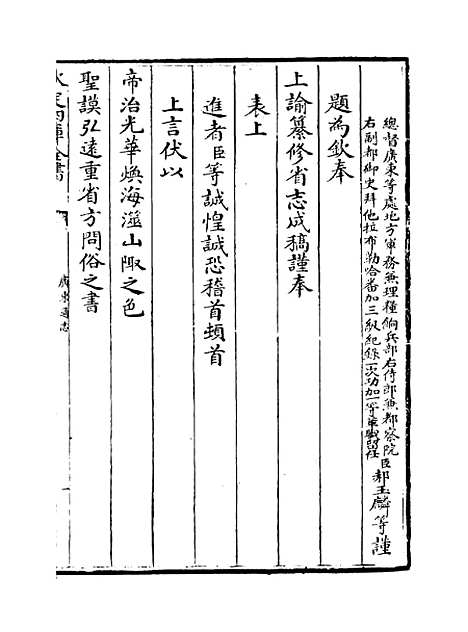 總督廣東等處地方軍務兼理糧餉兵部右侍郎兼都察院
右副都御史拜他拉布勒哈番加三級紀錄一次功加一等軍職留任
臣郝玉麟等謹
題為欽奉
上諭纂修省志成稿謹奉
表上
進者臣等誠惶誠恐稽首頓首
上言伏以
帝治光華煥海澨山陬之色
聖謨弘遠重省方問俗之書
欽定四庫全書
廣東通志
一